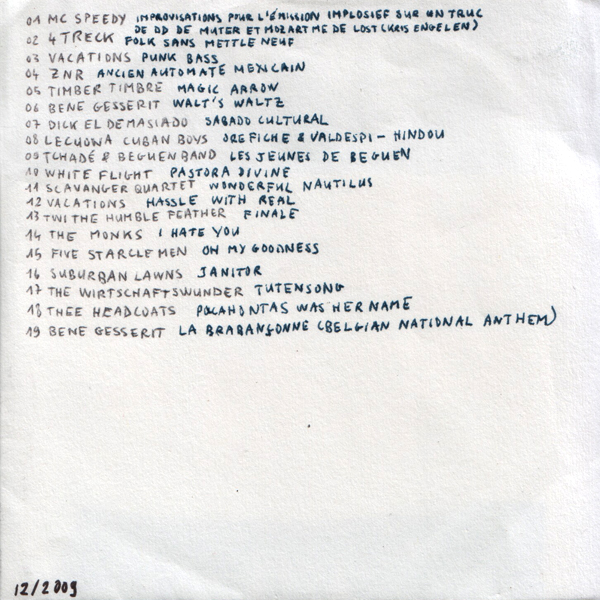 01 MC SPEEDY IMPROVISATIONS POUR L'ÉMISSION IMPLOSIEF SUR UN TRUC
DE DD DE MUTER ET MOZART ME DE LOST (KRIS ENGELEN)
02 4TRECK FOLK SANS METTLE NEUF
03 VACATIONS PUNK BASS
04 ZNR ANCIEN AUTOMATE MEXICAIN
05 TIMBER TIMBRE MAGIC ARROW
06 BENE GESSERIT WALT'S WALTZ
07 DICK EL DEMASIADO SABADO CULTURAL
08 LECUOWA CUBAN BOYS OREFICHE & VALDESPI - HINDOU
09 TCHADÉ & BEGUEN BAND LES JEUNES DE BEGUEN
10 WHITE FLIGHT PASTORA DIVINE
11 SCAVANGER QUARTET WONDERFUL NAUTILUS
12 VACATIONS HASSLE WITH REAL
13 TWI THE HUMBLE FEATHER FINALE
14 THE MONKS I HATE YOU
15 FIVE STARCLE MEN OH MY GOODNESS
16 SUBURBAN LAWNS JANITOR
17 THE WIRTSCHAFTSWUNDER TUTENSONG
18 THEE HEADCOATS POCAHONTAS WAS HER NAME
19 BENE GESSERIT LA BRABANÇONNE (BELGIAN NATIONAL ANTHEM)
12/2009